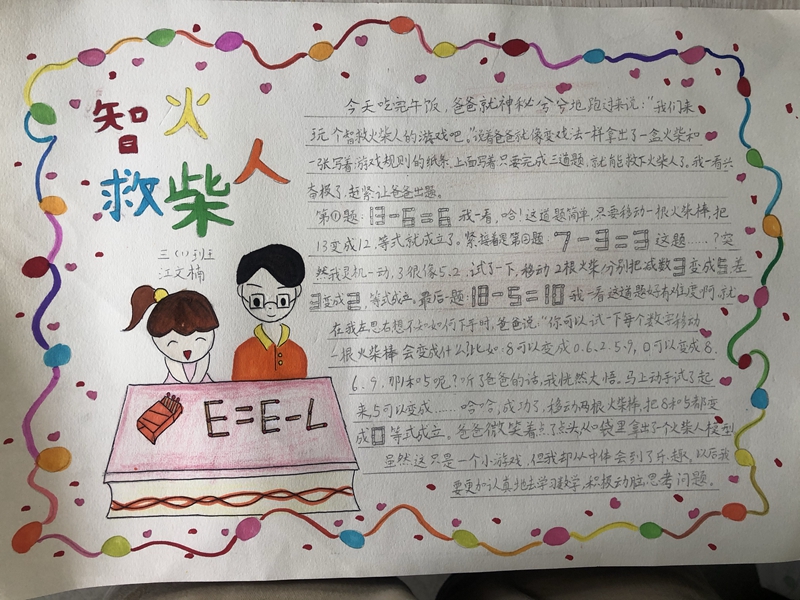 智火
救柴人
三(1)班
江文楠
E=E-L
今天吃完午饭，爸爸就神秘兮兮地跑过来说："我们来
玩个智救火柴人的游戏吧。"说着爸爸就像变戏法一样拿出了一盒火柴和
一张写着游戏规则的纸条，上面写着只要完成三道题，就能救下火柴人了。我一看兴
奋极了，赶紧让爸爸出题。
第①题：13-6=6 我一看，哈！这道题简单，只要移动一根火柴棒，把
13变成12，等式就成立了。紧接着是第②题 7-3=3 这题……？突
然我灵机一动，3很像5.2，试了一下，移动2根火柴分别把减数3变成5，差
3变成2，等式成立。最后一题：18-5=10 我一看这道题好有难度啊，就
在我左思右想不知如何下手时，爸爸说："你可以试一下每个数字移动
一根火柴棒会变成什么？比如：8可以变成0.6.2.5.9，0可以变成8.
6.9，那1和5呢？"听了爸爸的话，我恍然大悟，马上动手试了起
来，5可以变成……哈哈，成功了，移动两根火柴棒，把8和5都变
成0等式成立。爸爸微笑着点了点头，从口袋里拿出了个火柴人模型
虽然这只是一个小游戏，但我却从中体会到了乐趣，以后我
要更加认真地去学习数学，积极动脑思考问题。